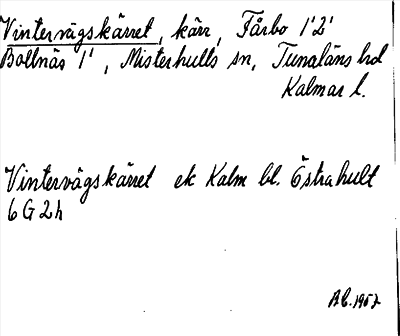 Vintervägskärret, kärr, Fårbo 1'2'
Bollnäs 1', Misterhults sn, Tunaläns hd
Kalmar l.
Vintervägskärret ek Kalm bl. Östrahult
6 G 2 h
A.C. 1957